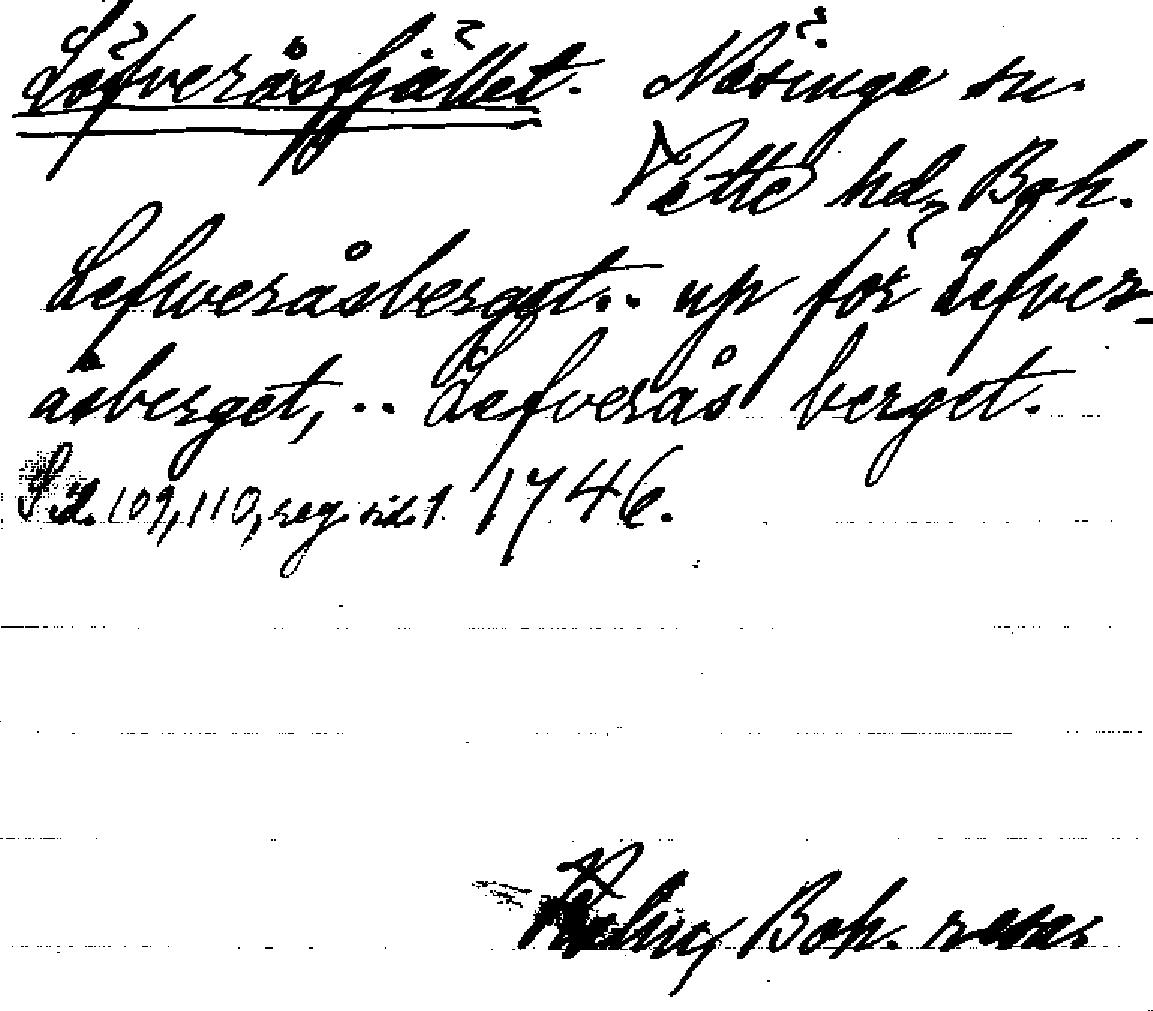 Löfveråsfjället. Näsinge sn.
Vette hd, Boh.
Lefveråsberget.. up för Lefver-
åsberget, .. Lefverås berget.
Sid. 109, 110, reg. sid. 1. 1746.
Boh. resa